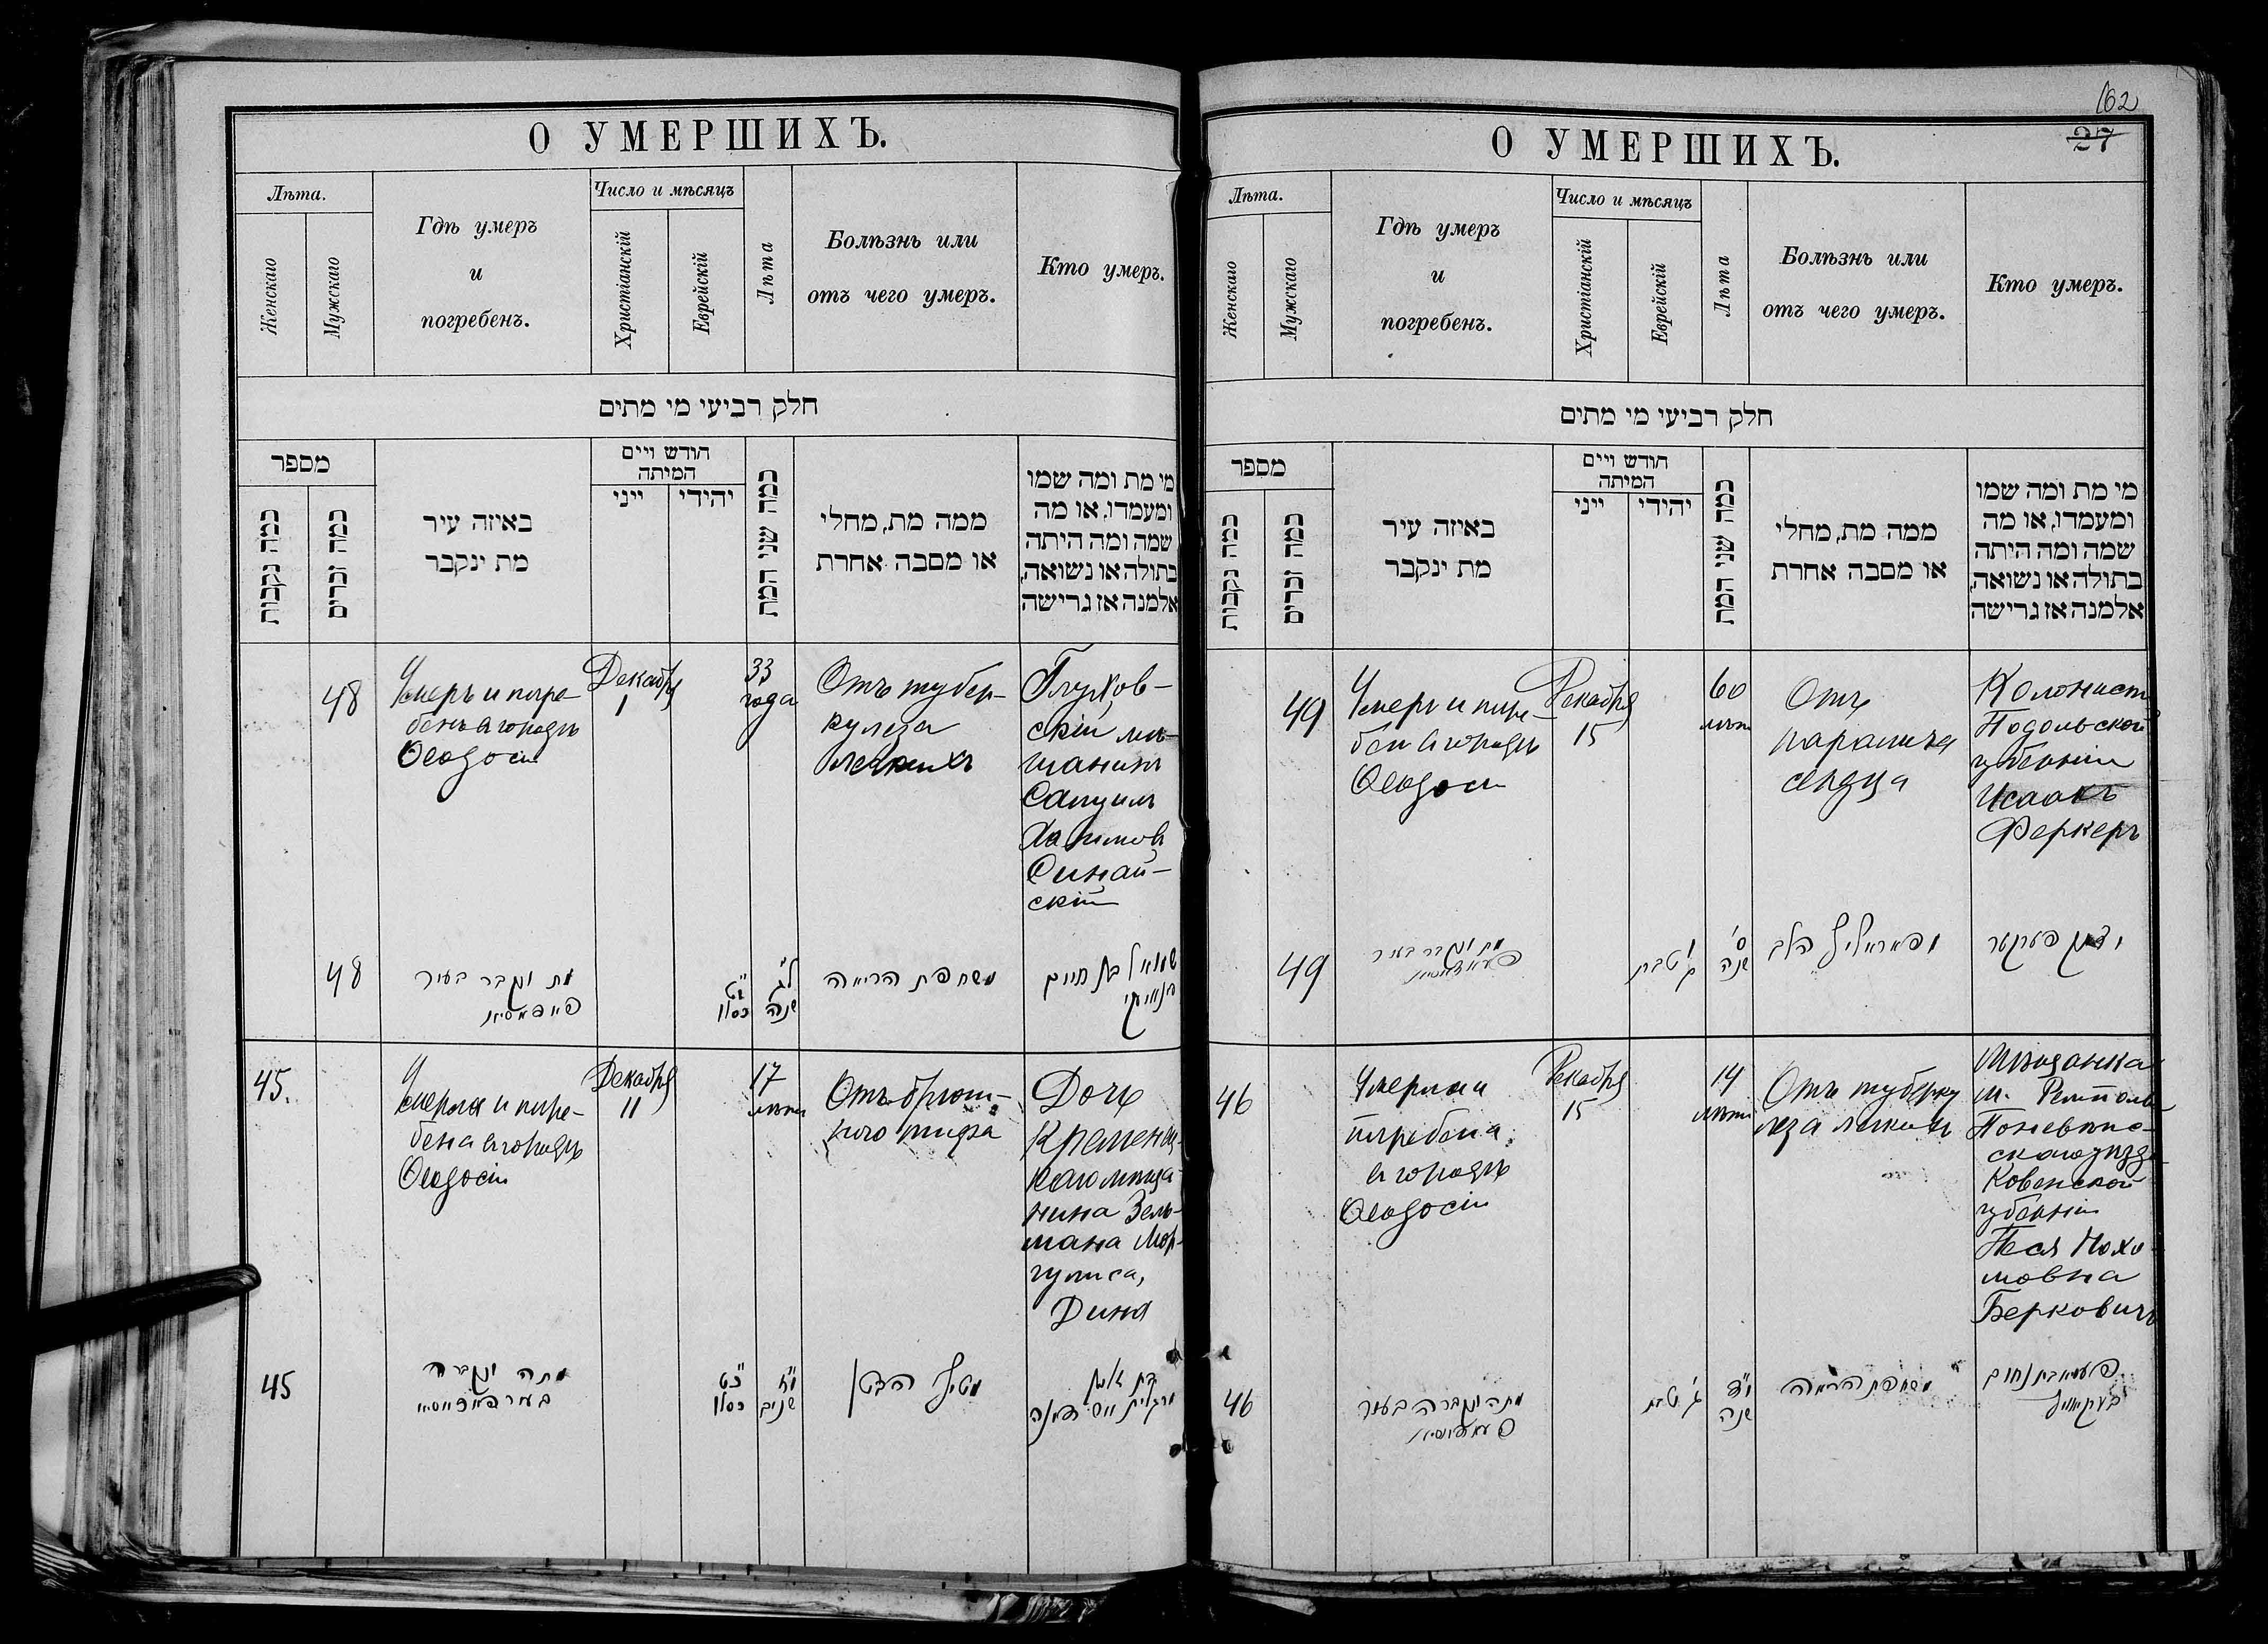 О УМЕРШИХЪ.
Лѣта.
Женскаго
Мужскаго
Гдѣ умеръ
и
погребенъ.
Число и мѣсяцъ
Христіанскій
Еврейскій
Лѣта
Болѣзнь или
отъ чего умеръ.
Кто умеръ.
חלק רביעי מי מתים
מספר
כמה נקבות
כמה זכרים
באיזה עיר
מת ינקבר
חודש ויים
המיתה
ייני
יהודי
כמה שני המת
ממה מת, מחלי
או מסבה אחרת
מי מת ומה שמו
ומעמדו, או מה
שמה ומה היתה
בתולה או נשואה,
אלמנה אז גרישה
48
Умеръ и погре-
бенъ въ городѣ
Ѳеодосіи
Декабря
1
33
года
Отъ тубер-
кулеза
легкихъ
Глухов-
скій мѣ-
щанинъ
Самуилъ
Хаимовъ
Синай-
скій
48
מת ונקבר בעיר
י"ט
כסלו
ל"ג
שנה
משחפת הריאה
שמואל בן חיים
סינייסקי
45.
Умерла и погре-
бена въ городѣ
Ѳеодосіи
Декабря
11
17
лѣтъ
Отъ брюш-
ного тифа
Дочь
Кременчуг-
каго мѣща-
нина Зель-
мана Мор-
гулиса,
Дина
45
מתה ונקברה
בעיר
כ"ט
כסלו
שנים
מטיף הבטן
О УМЕРШИХЪ.
162
27
Лѣта.
Женскаго
Мужскаго
Гдѣ умеръ
и
погребенъ.
Число и мѣсяцъ
Христіанскій
Еврейскій
Лѣта
Болѣзнь или
отъ чего умеръ.
Кто умеръ.
חלק רביעי מי מתים
מספר
כמה נקבות
כמה זכרים
באיזה עיר
מת ינקבר
חודש ויים
המיתה
ייני
יהודי
כמה שני המת
ממה מת, מחלי
או מסבה אחרת
מי מת ומה שמו
ומעמדו, או מה
שמה ומה היתה
בתולה או נשואה,
אלמנה אז גרישה
49
Умеръ и погре-
бенъ въ городѣ
Ѳеодосіи
Декабря
15
60
лѣтъ
Отъ
паралича
сердца
Колонистъ
Подольской
губерніи
Исаакъ
Феркеръ
49
מת ונקבר בעיר
טבת
ס'
שנה
הלב
יצחק פערקער
46
Умерла и
погребена
въ городѣ
Ѳеодосіи
Декабря
15
14
лѣтъ
Отъ туберку
леза легкихъ
Мѣщанка
м.
Поневѣже-
скаго уѣзда
Ковенской
губерніи
Песя Нохи-
мовна
Берковичъ
46
מתה ונקברה בעיר
ג' טבת
י"ד
שנה
משחפת הריאה
בת נחום
בערקאוויץ